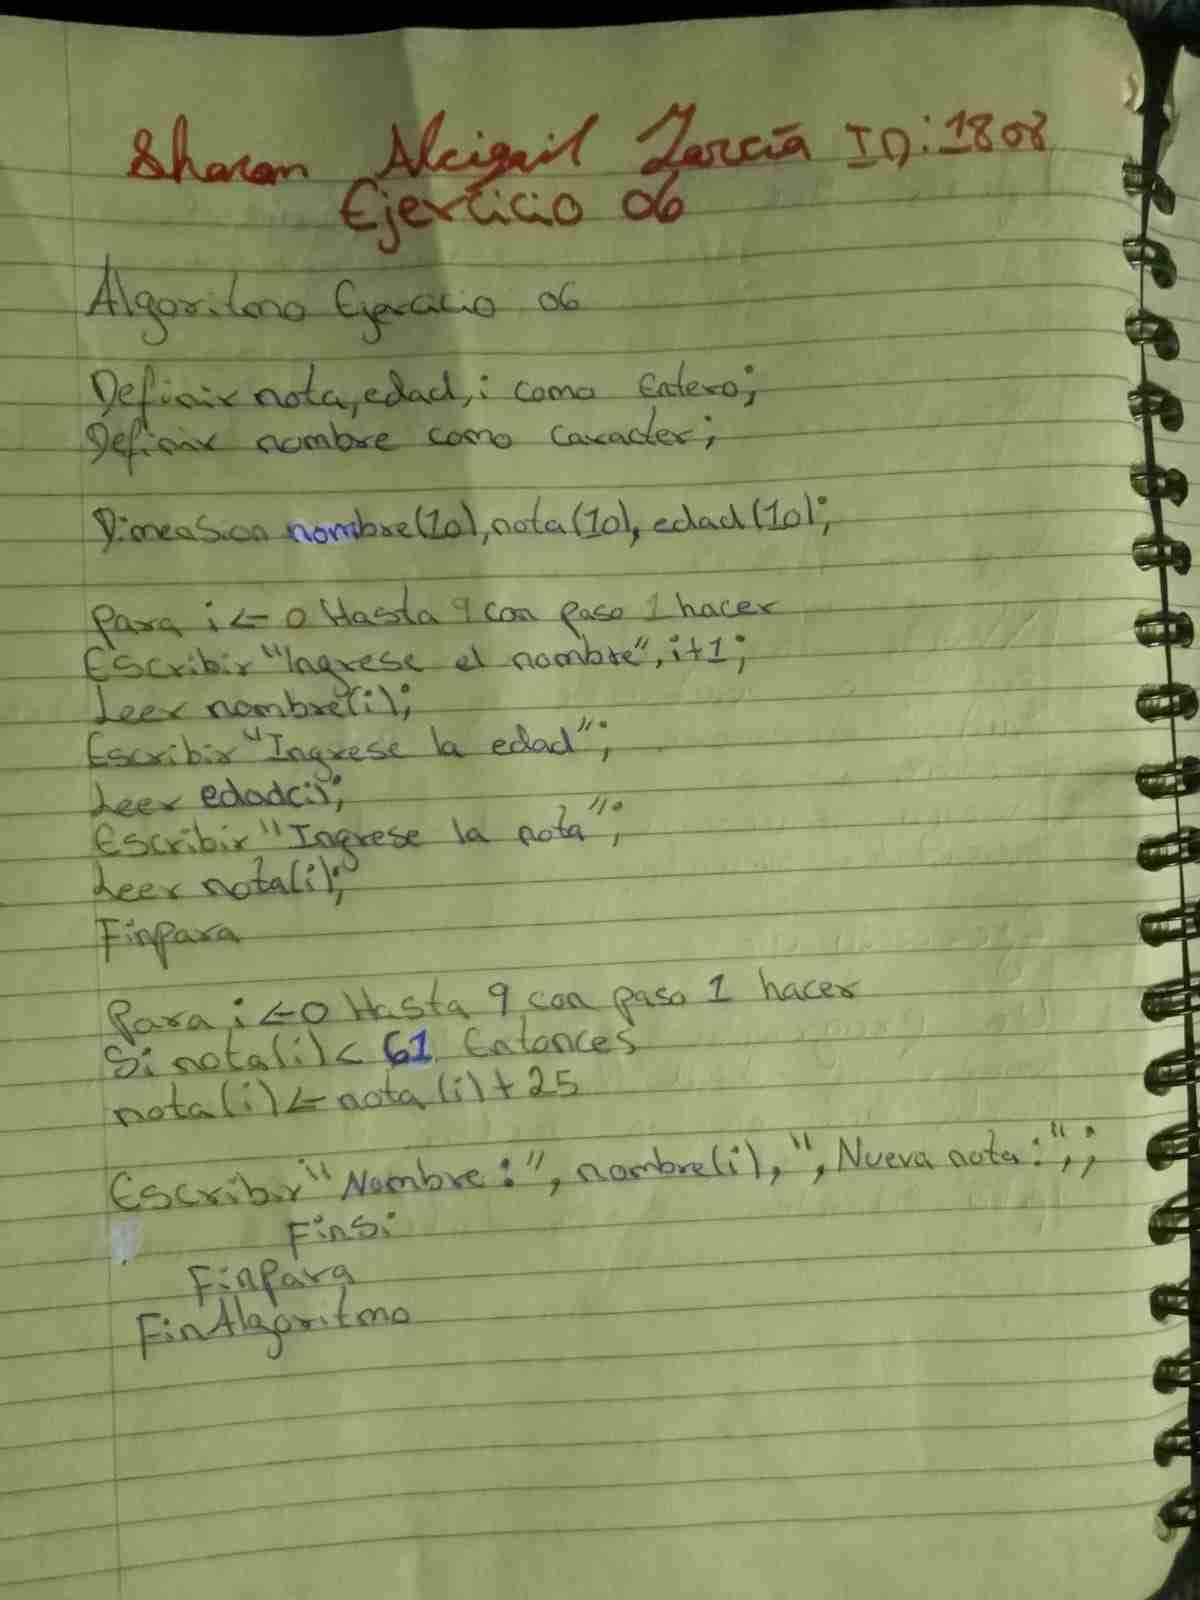 Sharon Abigail García ID:1808
Ejercicio 06
Algoritmo Ejercicio 06
Definir nota, edad, i como Entero;
Definir nombre como caracter;
Dimension nombre(10), nota(10), edad(10);
para i ← 0 Hasta 9 con paso 1 hacer
Escribir "Ingrese el nombre", i+1;
Leer nombre(i);
Escribir "Ingrese la edad";
Leer edad(i);
Escribir "Ingrese la nota";
Leer nota(i);
Finpara
Para i ← 0 Hasta 9 con paso 1 hacer
Si nota(i) < 61 Entonces
nota(i) ← nota(i) + 25
Escribir "Nombre:", nombre(i), ", Nueva nota:",;
FinSi
FinPara
FinAlgoritmo